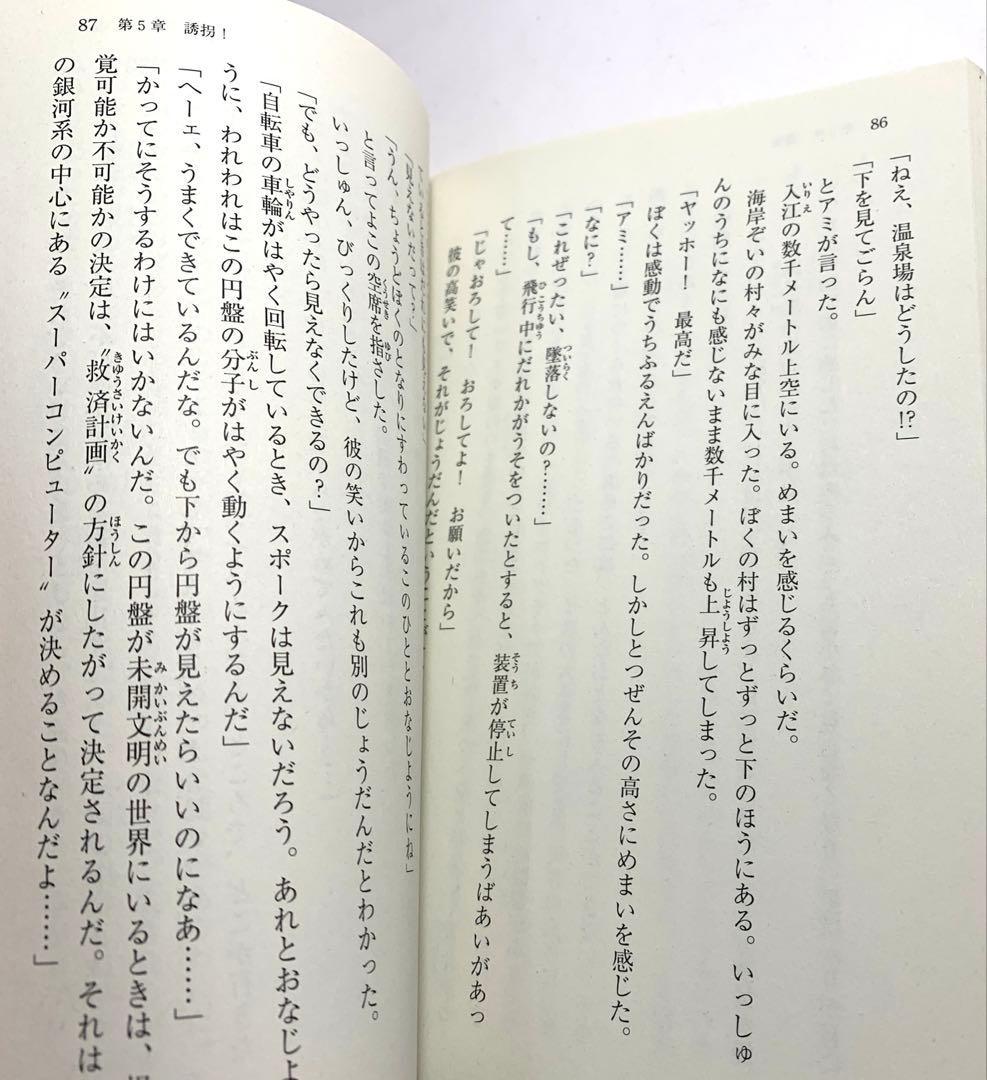 86
「ねえ、温泉場はどうしたの!?」
「下を見てごらん」
とアミが言った。
入江の数千メートル上空にいる。めまいを感じるくらいだ。
海岸ぞいの村々がみな目に入った。ぼくの村はずっとずっと下のほうにある。いっしゅ
んのうちになにも感じないまま数千メートルも上昇してしまった。
「ヤッホー！　最高だ」
ぼくは感動でうちふるえんばかりだった。しかしとつぜんその高さにめまいを感じた。
「アミ……」
「なに？」
「これぜったい、墜落しないの？……」
「もし、飛行中にだれかがうそをついたとすると、装置が停止してしまうばあいがあっ
て……」
「じゃおろして！　おろしてよ！　お願いだから」
彼の高笑いで、それがじょうだんだということが
87　第5章　誘拐！
「見えないだって？」
「うん、ちょうどぼくのとなりにすわっているこのひととおなじようにね」
と言ってよこの空席を指さした。
いっしゅん、びっくりしたけど、彼の笑いからこれも別のじょうだんだとわかった。
「でも、どうやったら見えなくできるの？」
「自転車の車輪がはやく回転しているとき、スポークは見えないだろう。あれとおなじよ
うに、われわれはこの円盤の分子がはやく動くようにするんだ」
「ヘーェ、うまくできているんだな。でも下から円盤が見えたらいいのになあ……」
「かってにそうするわけにはいかないんだ。この円盤が未開文明の世界にいるときは、
覚可能か不可能かの決定は、〝救済計画〟の方針にしたがって決定されるんだ。それは
の銀河系の中心にある〝スーパーコンピューター〟が決めることなんだよ……」